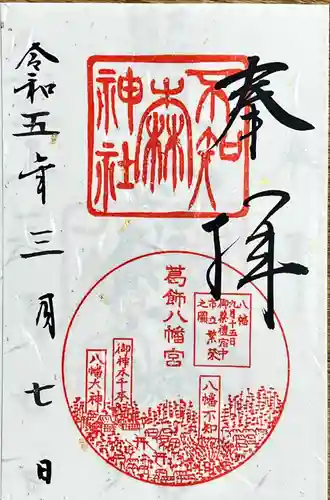 奉拝
不知
森
神社
令和五年三月七日
葛飾八幡宮
八幡
九月十五日
御祭禮宿中
市立繁栄
之圖
御神木千本
八幡大神
八幡不知